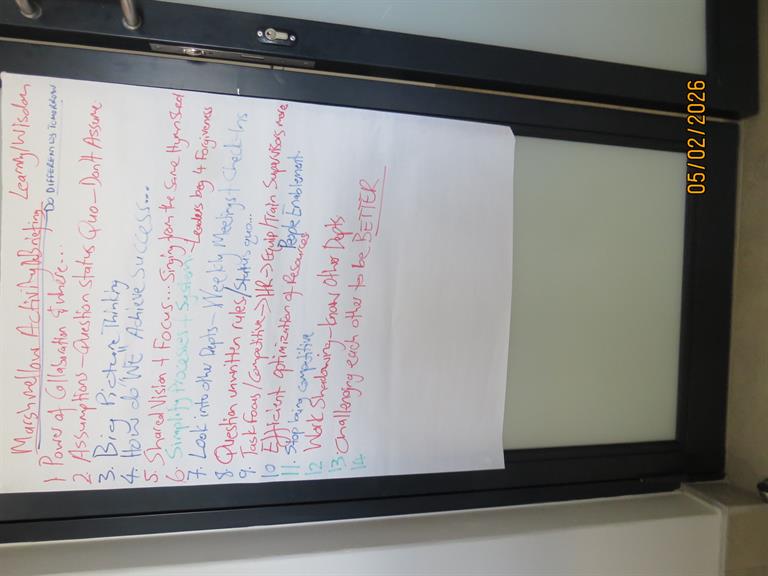 Marshmellow Activity Debriefing Learning/Wisdom
DO DIFFERENTLY TOMORROW
1 Power of Collaboration & where...
2 Assumptions - Question status Quo - Don't Assume
3. Big Picture Thinking
4. How do "WE" Achieve Success...
5. Shared Vision + Focus... Singing from the Same Hymn Sheet
6. Simplify Processes + Systems - Leaders beg 4 Forgiveness
7. Look into other Depts - Weekly Meetings + Check-Ins
8. Question unwritten rules/Status quo...
9. Task Focus/Competitive -> HR -> Equip/Train Supervisors more
People Enablement.
10 Efficient optimization of Resources
11. Stop being competitive
12 Work Shadowing - know Other Depts
13. Challenging each other to be BETTER
14.
05/02/2026